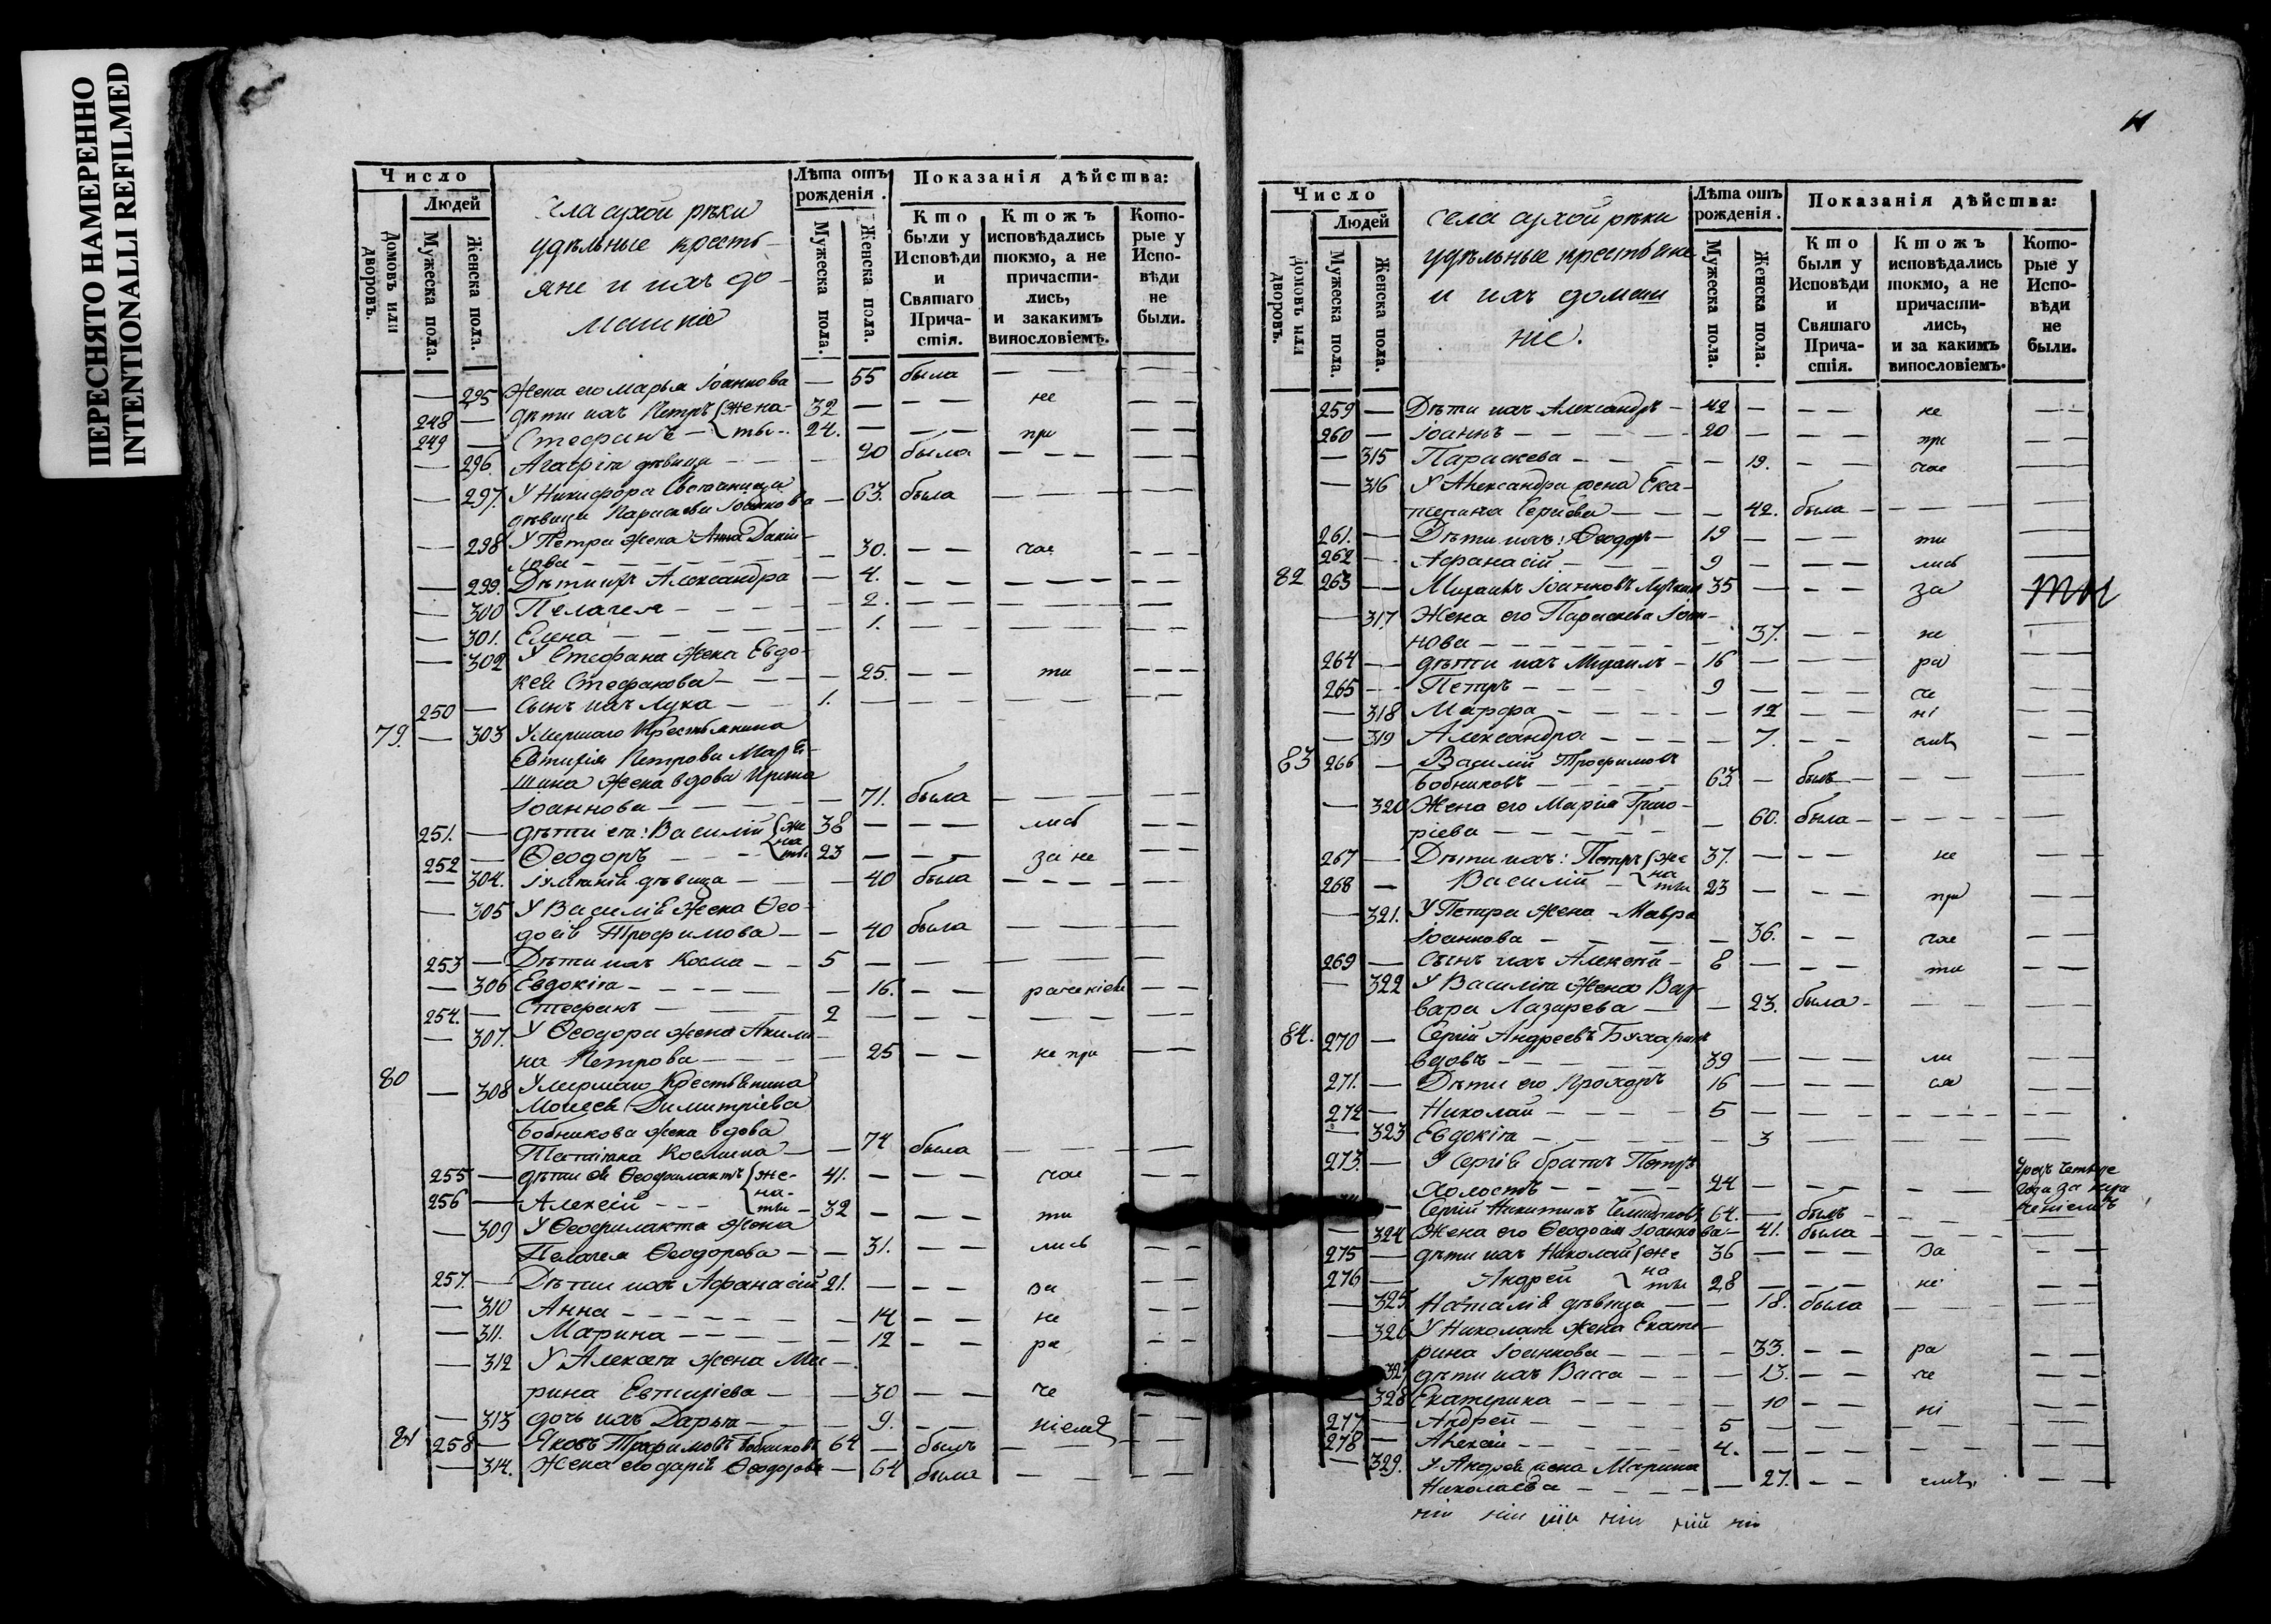 ПЕРЕСНЯТО НАМЕРЕННО
INTENTIONALLI REFILMED
Число
Людей
Домовъ или дворовъ.
Мужеска пола.
Женска пола.
села сухой рѣки
удѣльные кресть-
яне и ихъ до-
машніе
Лѣта отъ рожденія.
Мужеска пола.
Женска пола.
Показанія дѣйства:
Кто были у Исповѣди и Святаго Причастія.
Ктожъ исповѣдались токмо, а не причасти-лись, и закакимъ винословіемъ.
Кото-рые у Испо-вѣди не были.
— 295 Жена его Марья Іоаннова — 55 была — —
248 — дѣти ихъ Петръ {жена- 32 — — — не
249 — Стефанъ — {ты 24. — — — при
— 296. Агафія дѣвица — — 20 была — — —
— 297. У Никифора
дѣвица Параскева Іоаннова — 63. была — — —
— 298 У Петра жена Анна Дани-
лова — — — 30. — — чае — — —
— 299. Дѣти ихъ Александра — 4. — — — —
— 300 Пелагея — — — 2. — — — —
— 301. Елена — — — 1. — — — —
— 302 У Стефана жена Евдо-
кея Стефанова — — 25. — — ти — — —
250 — Сынъ ихъ Лука — — 1. — — — —
79. — 303 Умершаго Крестьянина
Евтихія Петрова
жена вдова Ирина
Іоаннова — — — 71. была — — —
251. — дѣти ея: Василій {же 38 — — — лись — —
252 — Ѳеодоръ — — {на ты 23 — — — за не — —
— 304. Іуліанія дѣвица — — 40 была — — —
— 305 У Василія жена Ѳео-
досія Трофимова — — 40 была — — —
253 — Дѣти ихъ Косма — — 5 — — — —
— 306 Евдокія — — — 16. — — раченіем — —
254. — Стефанъ — — — 2 — — — —
— 307. У Ѳеодора жена Акили-
на Петрова — — — 25 — — не при — —
80 — 308 Умершаго Крестьянина
Моисея Димитріева
Бобникова жена вдова
Татіана Космина — — 74 была — — —
255 — дѣти ея Ѳеофилактъ {же- 41. — — — чае
256 — Алексій — — {на-ты 32 — — — ти
— 309 У Ѳеофилакта жена
Пелагея Ѳеодорова — — 31. — — лись — —
257. — Дѣти ихъ Афанасій 21. — — — за — —
— 310 Анна — — — 14 — — не — —
— 311. Марина — — — 12 — — ра — —
— 312 У Алексея жена Ма-
рина Евтихіева — — 30 — — че —
— 313 дочь ихъ Дарья — — 9. — — ніемъ — —
81 258 — Яковъ Трофимовъ Бобниковъ 64 — былъ — — —
— 314. Жена его Дарія Ѳеодорова — 64 была — — —
Число
Людей
Домовъ или дворовъ.
Мужеска пола.
Женска пола.
села сухой рѣки
удѣльные крестьяне
и ихъ домаш
ніе.
Лѣта отъ рожденія.
Мужеска пола.
Женска пола.
Показанія дѣйства:
Кто были у Исповѣди и Святаго Прича-стія.
Ктожъ исповѣдались токмо, а не причасти-лись, и за какимъ винословіемъ.
Кото-рые у Испо-вѣди не были.
259 — Дѣти ихъ Александръ — 42 — — — не — —
260 — Іоаннъ — — — 20 — — — при — —
— 315 Параскева — — — 19. — — чае — —
— 316 У Александра жена Ека-
терина Сергіева — — — 42. была — — —
261. — Дѣти ихъ: Ѳеодоръ — 19 — — — ти —
262 — Афанасій — — 9 — — — лись —
82 263 — Михаилъ Іоанновъ 35 — — — за
— 317 Жена его Параскева Іоан-
нова — — — 37. — — не —
264 — дѣти ихъ Михаилъ — 16 — — — ра —
265 — Петръ — — — 9 — — — че —
— 318 Марфа — — — 12 — — ні —
— 319 Александра — — — 7. — — емъ — —
83 266 — Василій Трофимовъ
Бобниковъ — — — 63. — былъ — — —
— 320 Жена его Марія Григо-
ріева — — — 60. была — — —
267 — Дѣти ихъ: Петръ {же 37. — — — не — —
268 — Василій — {на ты 23 — — — при —
— 321. У Петра жена Мавра
Іоаннова — — — 36. — — чае — —
269 — Сынъ ихъ Алексѣй — 8 — — — ти — —
— 322 У Василія жена Вар-
вара Лазарева — — 23. была — — —
84. 270 — Сергій Андреевъ Бухаринъ
вдовъ — — — 39 — — — ли — —
271. — Дѣти его Прохоръ 16 — — — ся — —
272 — Николай — — — 5 — — — —
— 323 Евдокія — — — 3 — — —
273. — У Сергія братъ Петръ
холостъ — — — 24 — — — —
года за нера
ченіемъ
— Сергій Никитинъ 64. — былъ — —
— 324 Жена его Ѳеодосія Іоаннова — 41. была — — —
275 — дѣти ихъ Николай {же 36 — — — за — —
276 — Андрей {на ты 28 — — — не
— 325. Наталія дѣвица — — 18. была — — —
— 326 У Николая жена Екате-
рина Іоаннова — — — 33. — — ра — —
327 дѣти ихъ Васса — — — 13. — — че — —
— 328 Екатерина — — — 10 — — ні — —
277 — Андрей — — — 5 — — — —
278 — Алексѣй — — — 4. — — — —
— 329. У Андрея жена Марина
Николаева — — — 27. — — емъ — —